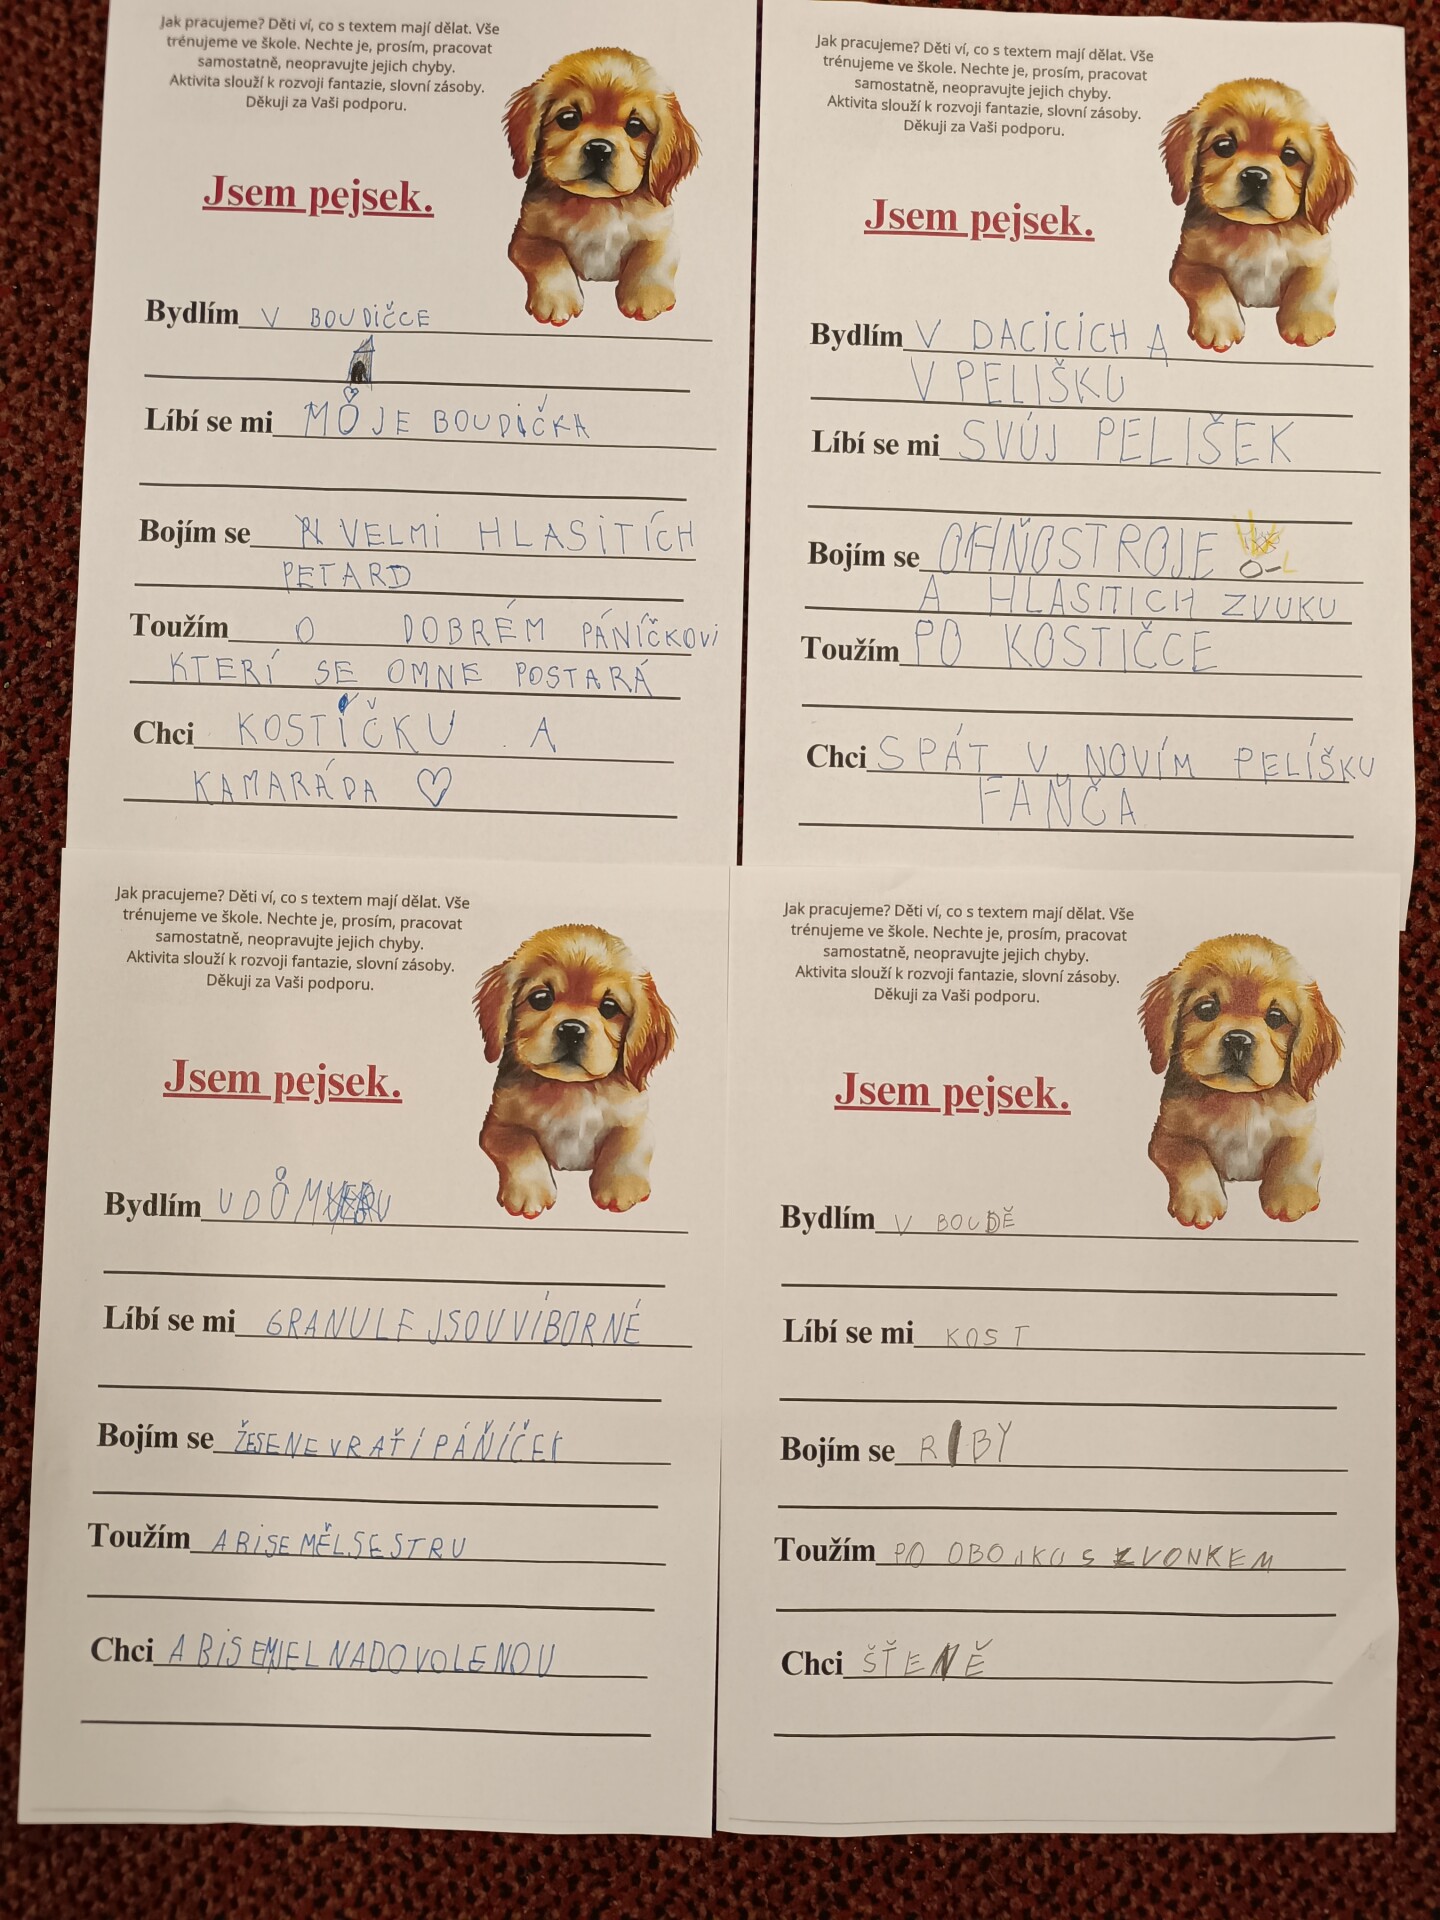 Jak pracujeme? Děti ví, co s textem mají dělat. Vše
trénujeme ve škole. Nechte je, prosím, pracovat
samostatně, neopravujte jejich chyby.
Aktivita slouží k rozvoji fantazie, slovní zásoby.
Děkuji za Vaši podporu.
Jsem pejsek.
Bydlím V BOUDIČCE
Líbí se mi MOJE BOUDIČKA
Bojím se VELMI HLASITÍCH
PETARD
Toužím O DOBRÉM PÁNÍČKOVI
KTERÍ SE OMNE POSTARÁ
Chci KOSTÍČKU A
KAMARÁDA
Jak pracujeme? Děti ví, co s textem mají dělat. Vše
trénujeme ve škole. Nechte je, prosím, pracovat
samostatně, neopravujte jejich chyby.
Aktivita slouží k rozvoji fantazie, slovní zásoby.
Děkuji za Vaši podporu.
Jsem pejsek.
Bydlím V DACICICH A
V PELIŠKU
Líbí se mi SVŮJ PELIŠEK
Bojím se OHŇOSTROJE
A HLASITICH ZVUKU
Toužím PO KOSTIČCE
Chci SPÁT V NOVÍM PELÍŠKU
FAŇČA
Jak pracujeme? Děti ví, co s textem mají dělat. Vše
trénujeme ve škole. Nechte je, prosím, pracovat
samostatně, neopravujte jejich chyby.
Aktivita slouží k rozvoji fantazie, slovní zásoby.
Děkuji za Vaši podporu.
Jsem pejsek.
Bydlím U DŮMU
Líbí se mi GRANULE JSOU VÍBORNÉ
Bojím se ŽESENEVRAŤÍ PÁŇÍČEK
Toužím ABISEMĚLSESTRU
Chci ABISEMJELNADOVOLENOU
Jak pracujeme? Děti ví, co s textem mají dělat. Vše
trénujeme ve škole. Nechte je, prosím, pracovat
samostatně, neopravujte jejich chyby.
Aktivita slouží k rozvoji fantazie, slovní zásoby.
Děkuji za Vaši podporu.
Jsem pejsek.
Bydlím V BOUDĚ
Líbí se mi KOST
Bojím se RIBY
Toužím PO OBOJKU S ZVONKEM
Chci ŠŤENĚ